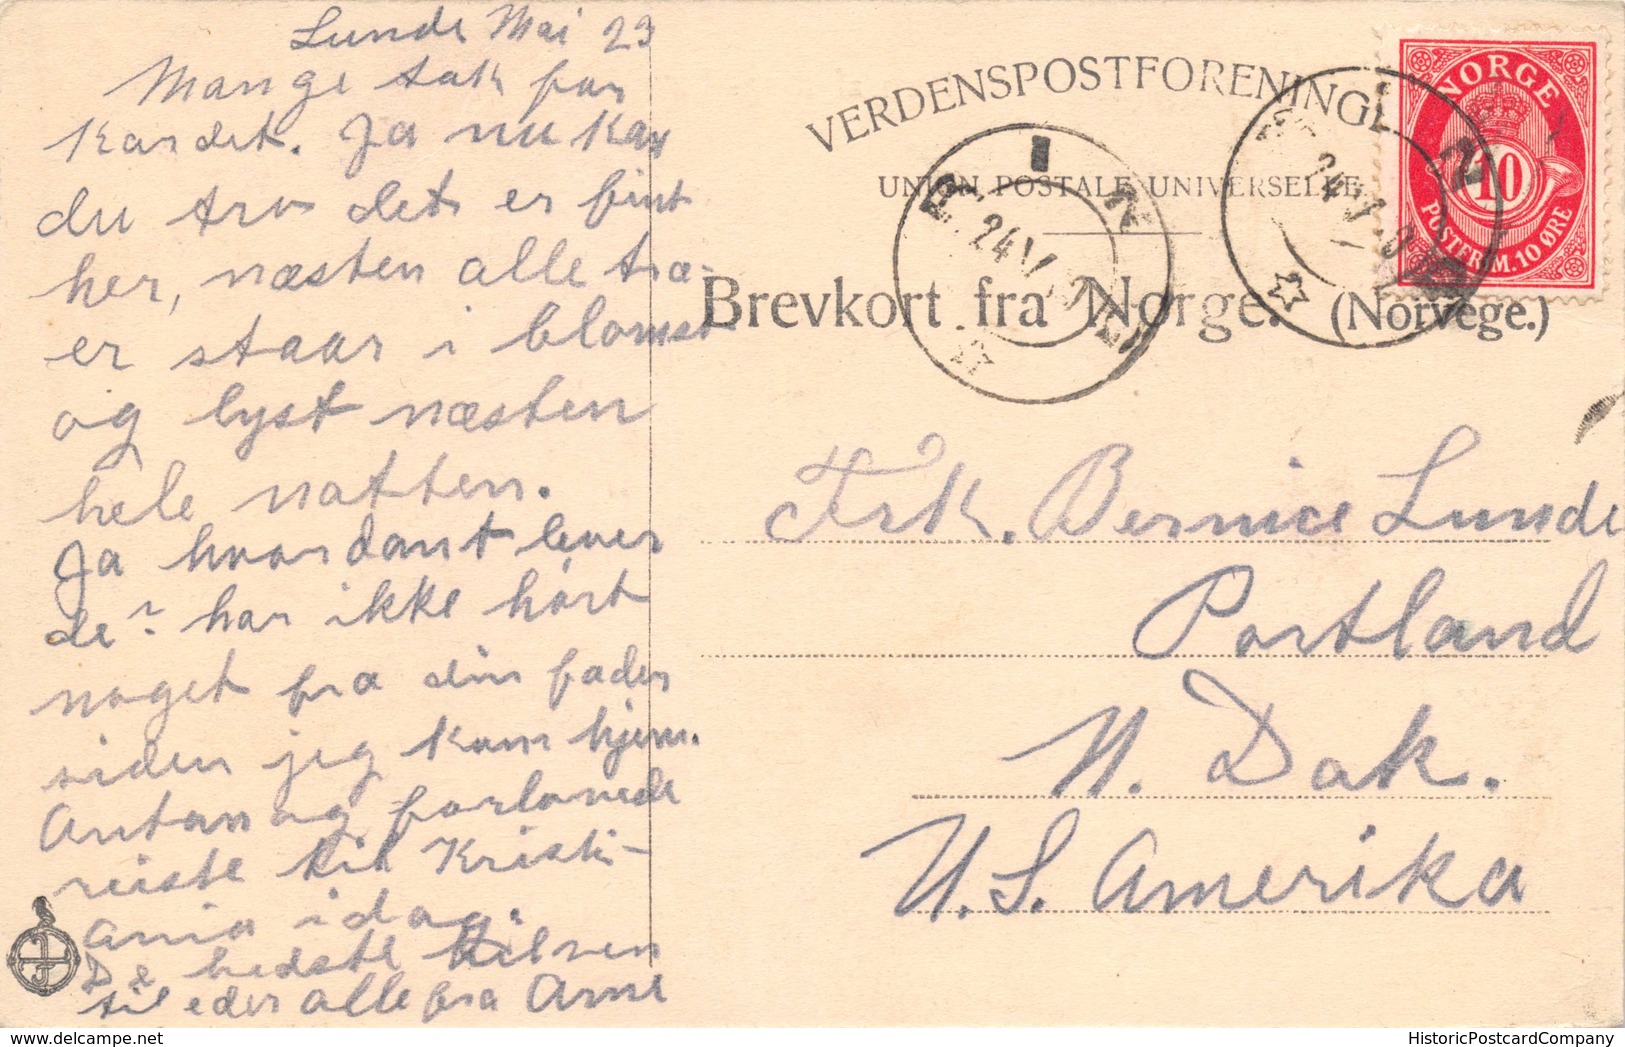 Lunde Mai 23
Mange tak for
kardet. Ja nu kan
du tro det er fint
her, næsten alle træ-
er staar i blomst
og lyst næsten
hele natten.
Ja hvordant lever
de? har ikke hört
noget fra din fader
siden jeg kom hjem.
Anton og forlovede
reiste til Kristi-
ania idag.
De bedste hilsen
til eder alle fra Arne
VERDENSPOSTFORENINGEN
UNION POSTALE UNIVERSELLE
Brevkort fra Norge. (Norvege.)
NORGE
10
POSTFRIM. 10 ØRE
24 V
24 V
Frk. Bernice Lunde
Portland
N. Dak.
U. S. Amerika
HistoricPostcardCompany